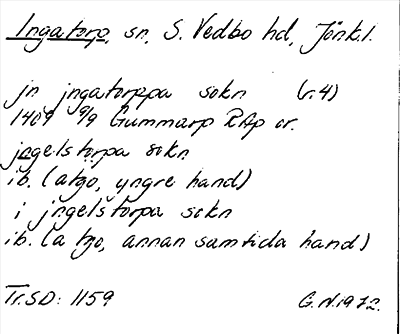 Ingatorp, sn, S. Vedbo hd, Jönk.l.
jn jngatorppa sokn (r.4)
1409 9/9 Gummarp RAp or.
jngelstorpa sokn
ib. (atgo, yngre hand)
i jngelstorpa sokn
ib. (a tgo, annan samtida hand)
Tr.SD: 1159 G.N.1972.